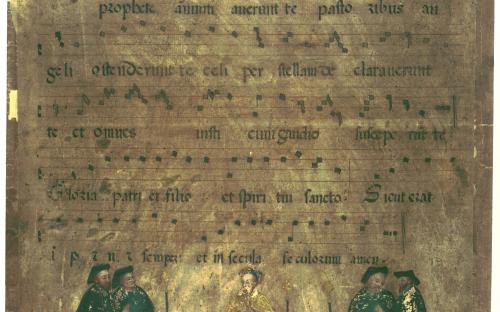 prophete anunti averunt te pasto ribus an
geli ostenderunt te celi per stellam de claraverunt
te et omnes iusti cum gaudio suscepe runt te
Gloria patri et filio et spiri tui sancto Sicut erat
i p r n r semper et in secula seculorum amen